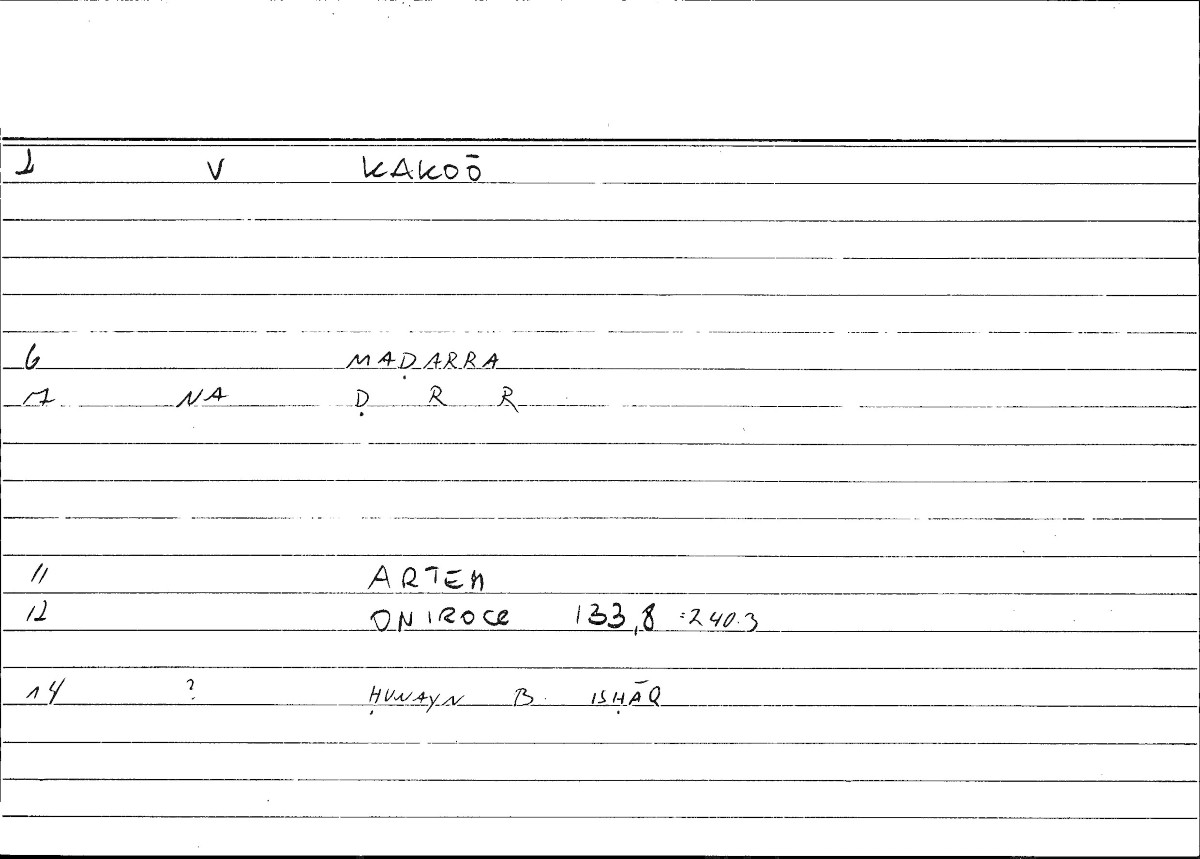 1 V KAKOŌ
6 MAḌARRA
7 NA Ḍ R R
11 ARTEM
12 ONIROCR 133,8 =240.3
14 ? ḤUNAYN B. ISḤĀQ